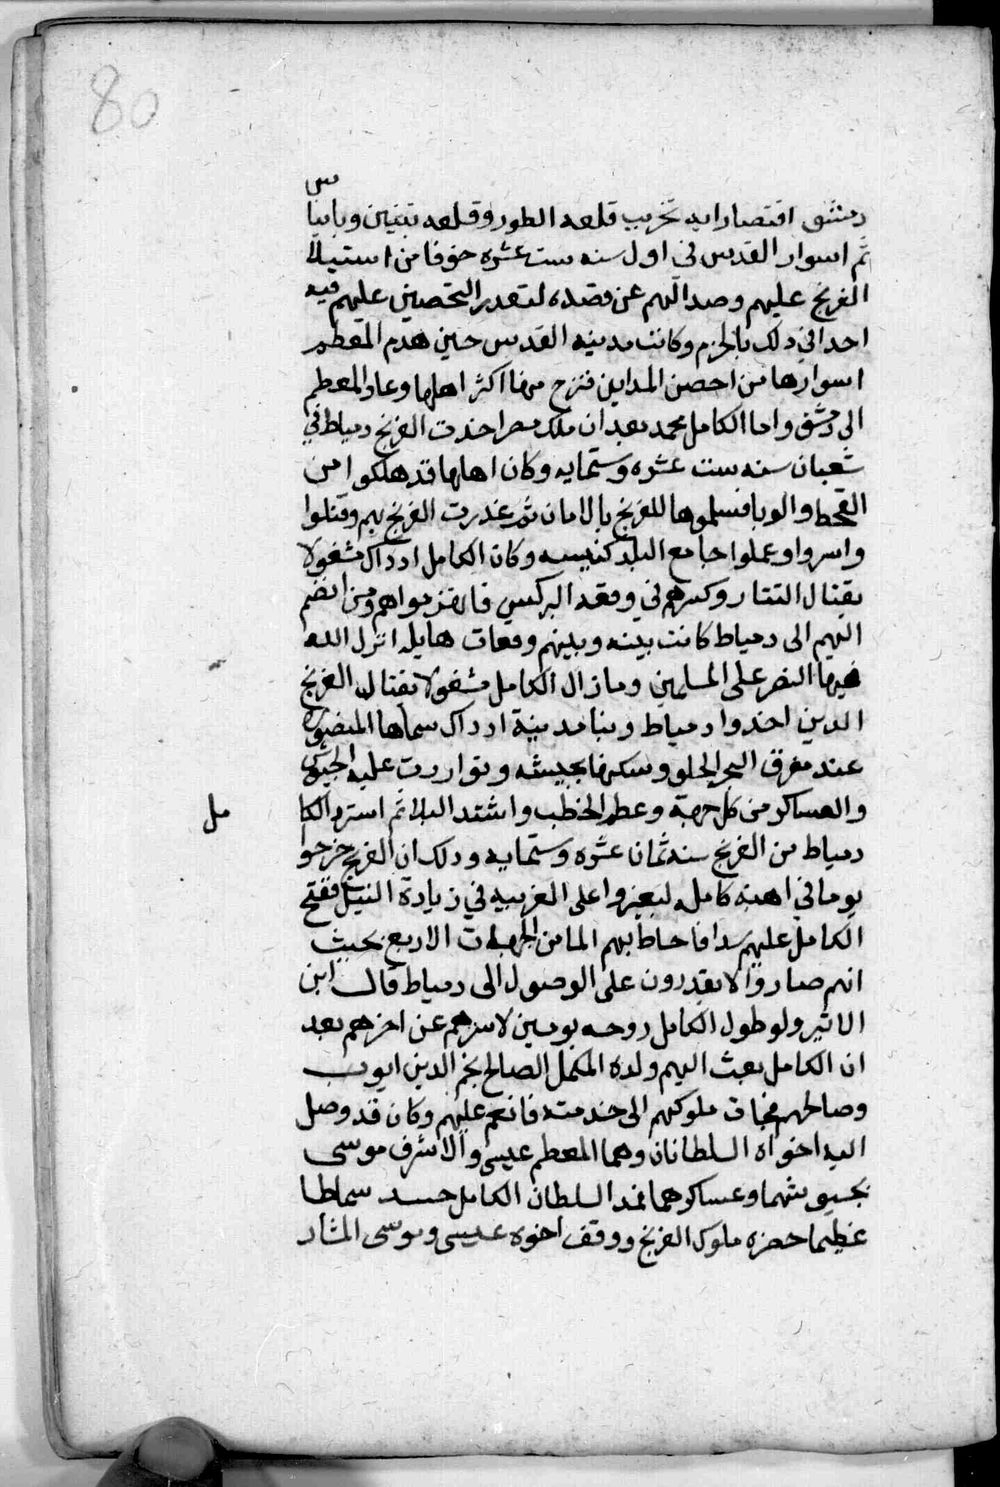 80
دمشق اقتصارايه تخريب قلعه الطور وقلعه تبنين وبانيا
س
ثم اسوار القدس في اول سنه ست عشره خوفا من استيلا
الفرنج عليهم وصدالهم عن قصده لتعدر التحصين عليهم فيه
احدا في دلك بالحزم وكانت مدينه القدس حين هدم المعظم
اسوارها من احصن المداين فنزح منها اكثر اهلها وعاد المعظم
الى دمشق واما الكامل محمد بعد ان ملك مصر اخذت الفرنج دمياط في
شعبان سنه ست عشره وستمايه وكان اهلها قد هلكوا من
القحط والوبا فسلموها للفرنج بالامان ثم غدرت الفرنج بهم وقتلوا
واسروا وعملوا جامع البلد كنيسه وكان الكامل ادداك مشغولا
بقتال التتار وكسرهم في وقعه البركس فانهزموا هم ومن انضم
اليهم الى دمياط كانت بينه وبينهم وقعات هايله انزل الله
فيها النصر على المسلمين ومازال الكامل مشغولا بقتال الفرنج
الدين اخدوا دمياط وبنا مدينة ادداك سماها المنصوره
عند مفرق البحر الحلو وسكنها بجيشه وتواردت عليه الجيوش
والعساكر من كل جهة وعظم الخطب واشتد البلا ثم استرد الكا
مل
دمياط من الفرنج سنه ثمان عشره وستمايه ودلك ان الفرنج خرجو
يوما في اهبه كامله ليغيروا على الغربيه في زيادة النيل ففتح
الكامل عليهم سدا فاحاط بهم الما من الجهات الاربع بحيث
انهم صاروا لا يقدرون على الوصول الى دمياط قال ابن
الاثير ولو طول الكامل روحه يومين لاسرهم عن اخرهم بعد
ان الكامل بعث اليهم ولده المكمل الصالح نجم الدين ايوب
وصالحهم فجات ملوكهم الى خدمته فانعم عليهم وكان قد وصل
اليه اخواه السلطانان وهما المعظم عيسى والاشرف موسى
بجيوشهما وعساكرهما فمد السلطان الكامل سماطا
عظيما حضره ملوك الفرنج ووقف اخوه عيسى وموسى المشار